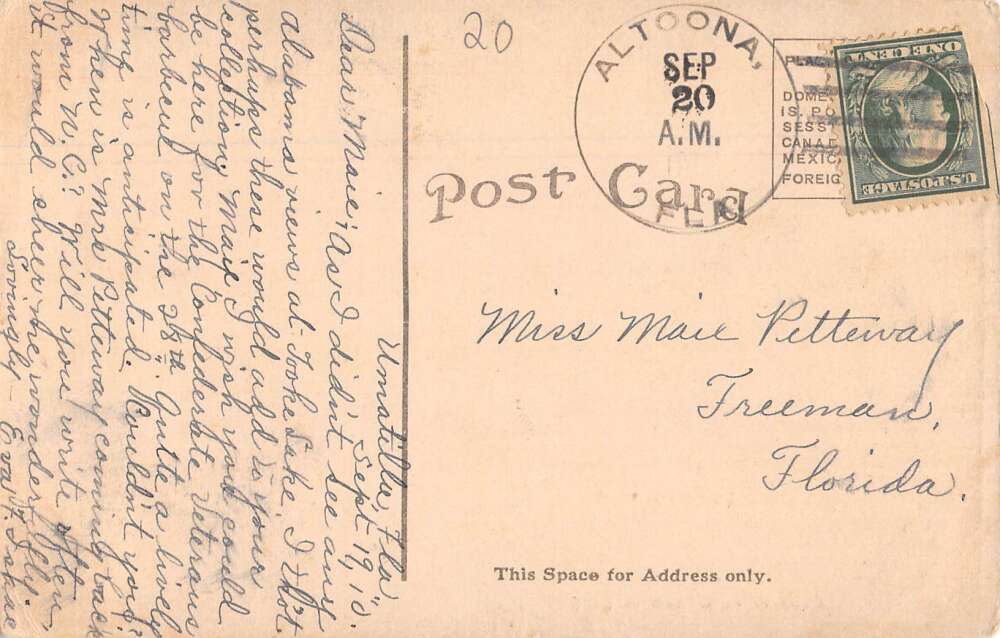 20
ALTOONA,
SEP
20
A.M.
FLA.
PLAC
DOME
IS. PO
SESS
CANAD
MEXIC
FOREIG
ONE CENT
U.S. POSTAGE
Post Card
Miss Maie Petteway
Freeman,
Florida.
This Space for Address only.
Umatilla, Fla.
Sept. 19, '10.
Dear Maie; As I didn't see any
Alabama views at Tooke Lake. I tho't
perhaps these would add to your
collection. Maie I wish you could
be here for the Confederate Veterans
barbecue on the 28th. Quite a lively
time is anticipated. Couldn't you?
When is Mrs. Petteway coming back
from N.C.? Will you write often,
it would cheer me wonderfully.
Lovingly - Eva F.